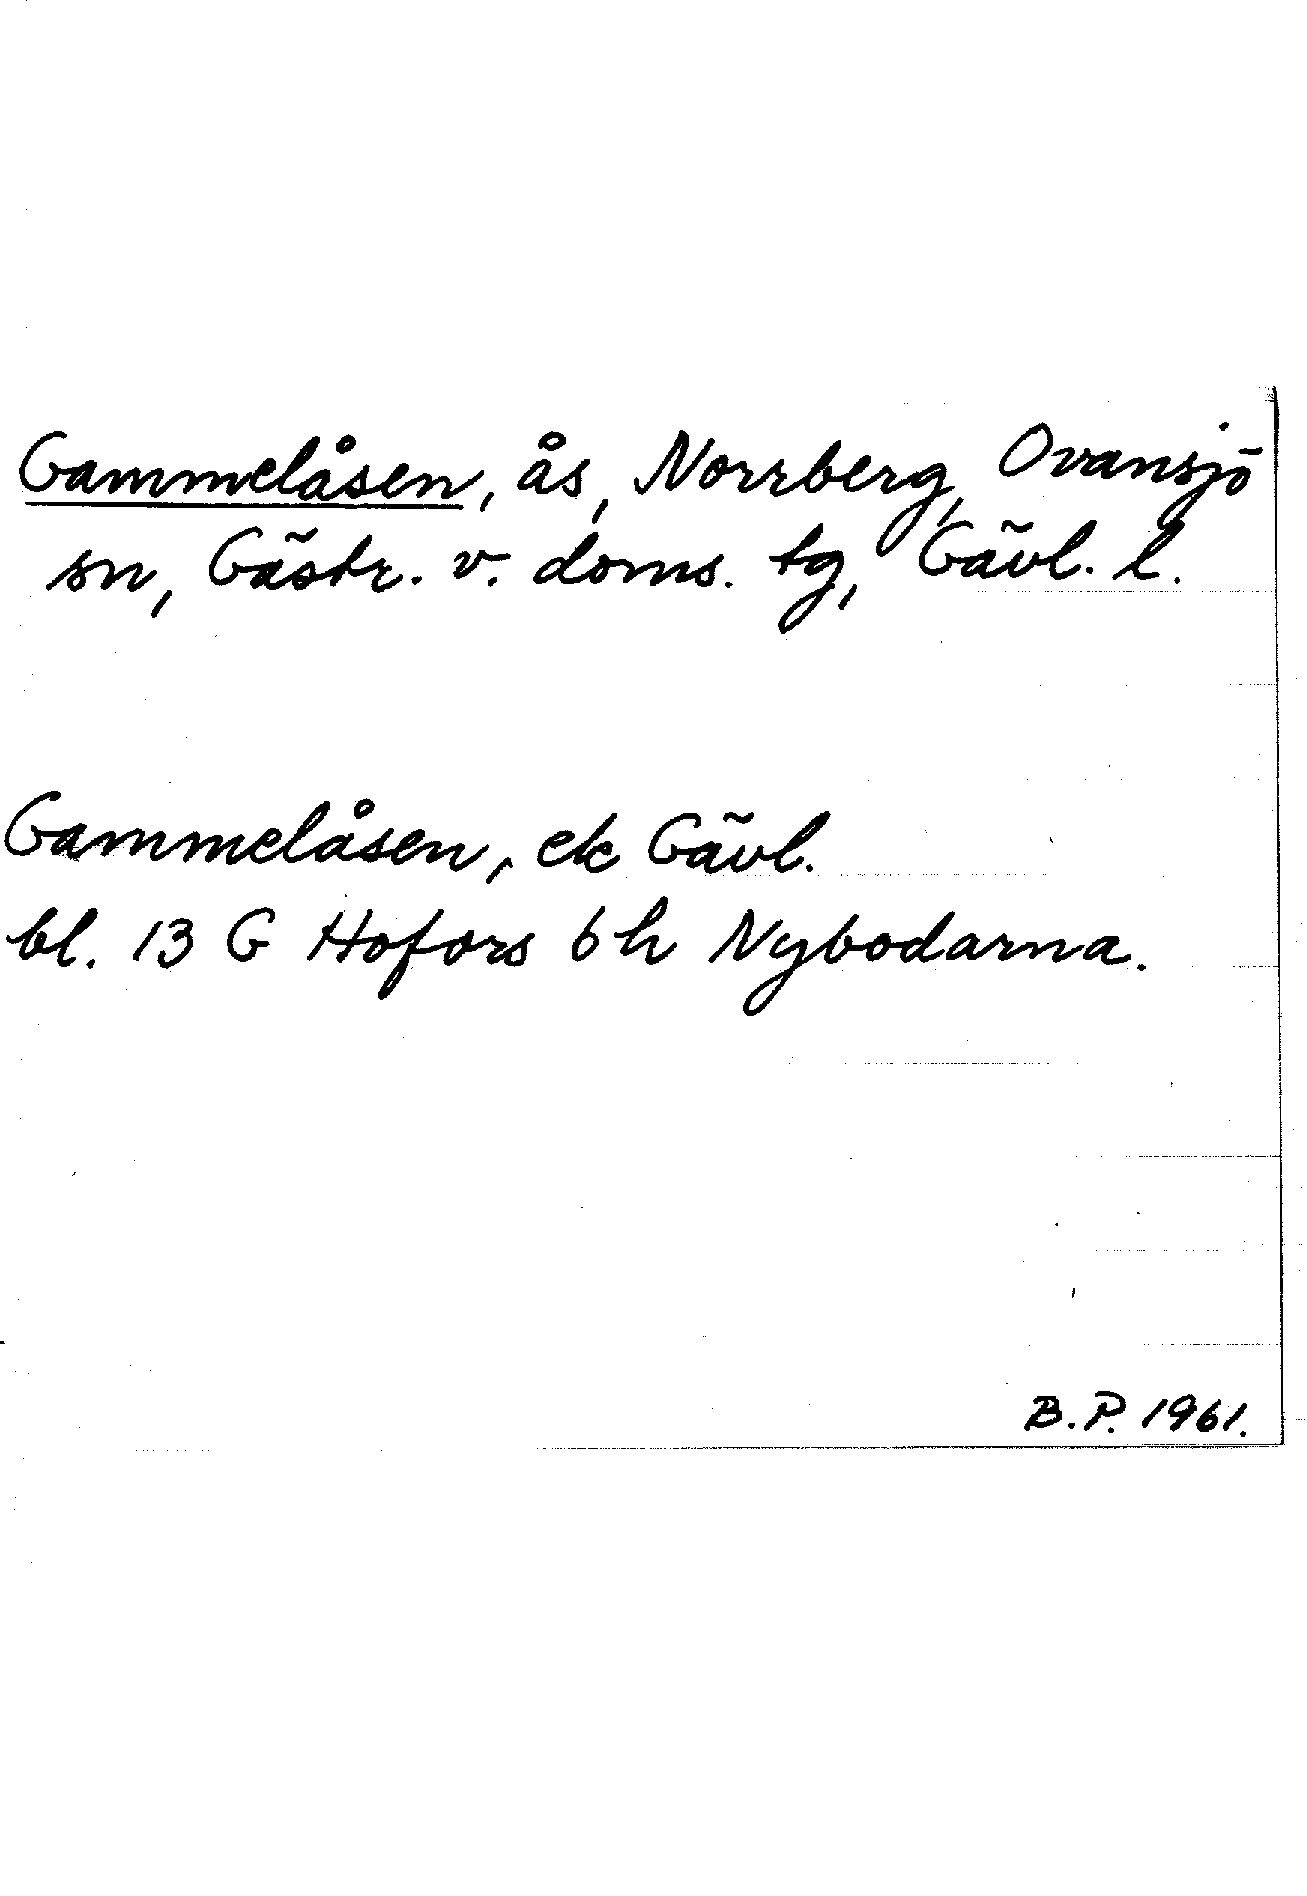 Gammelåsen, ås, Norrberg, Ovansjö
sn, Gästr. v. doms. tg, Gävl. l.
Gammelåsen, ek Gävl.
bl. 13 G Hofors 6 h Nybodarna.
B.P. 1961.